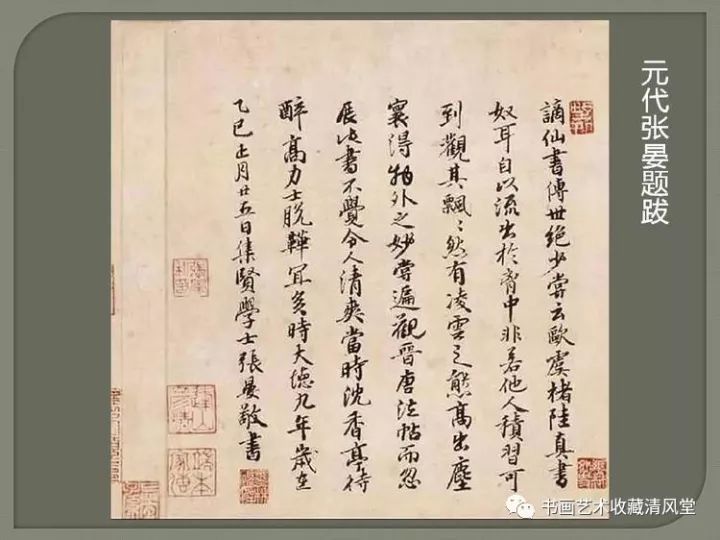 元代张晏题跋
謫仙書傳世絕少嘗云歐虞褚陸真書
奴耳自以流出於胷中非若他人積習可
到觀其飄〻然有凌雲之態高出塵
寰得物外之妙嘗遍觀晉唐法帖而忽
展此書不覺令人清爽當時沈香亭待
醉高力士脫鞾宜矣時大德九年歲在
乙巳正月廿五日集賢學士張晏敬書
书画艺术收藏清风堂